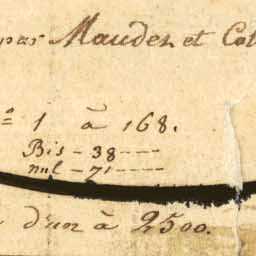 par Maudez et Col
a 1 à 168.
Bis - 38 ----
nul - 71 ----
d'un à 2500.